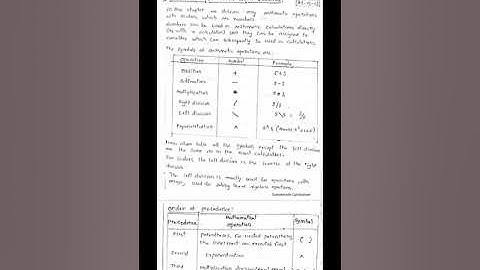 In this chapter we discuss only arithmetic operations
with scalars, which are numbers
Numbers can be used in arithmetic calculations directly
(as with a calculator) or they can be assigned to
variables which can subsequently be used in calculations.
The symbols of arithmetic operations are:
Operation Symbol Formula
Addition + 5+3
Subtraction - 5-3
Multiplication * 5*3
Right division / 5/3
Left division \ 5\3 = 3/5
Exponentiation ^ 5^3
From above table all the symbols except the left division
are the same as in the most calculators.
For scalars, the left division is the inverse of the right
division.
The left division is mostly used for operations with
arrays, used for solving linear algebraic equations.
Order of precedence:
Precedence Mathematical operation Symbol
First parentheses. For nested parentheses, the innermost are executed first ( )
Second Exponentiation ^
Third multiplication